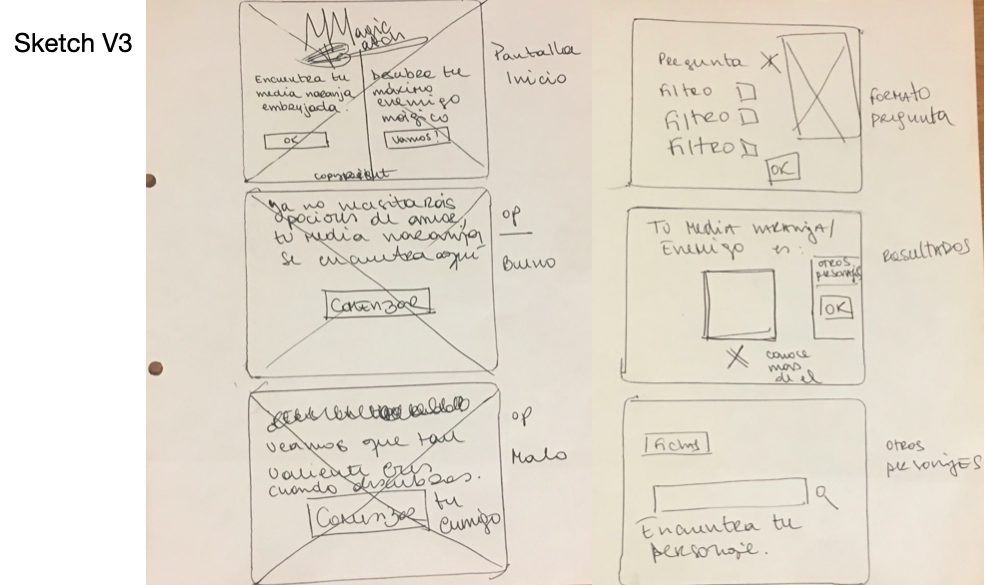 Sketch V3
Magic
Match
Encuentra tu
media naranja
embrujada.
OK
Descubre tu
máximo
enemigo
mágico
Vamos!
copyright
Pantalla
Inicio
ya no necesitarás
pociones de amor,
tu media naranja
se encuentra aquí
COMENZAR
OP
Bueno
veamos que tan
valiente eres
cuando descubras.
tu
Enemigo
COMENZAR
OP
Malo
Pregunta X
Filtro
Filtro
Filtro
OK
FORMATO
pregunta
TU MEDIA NARANJA/
ENEMIGO es:
OTROS
personajes
OK
X conoce
mas
de el
RESULTADOS
Fichas
Encuentra tu
personaje.
otros
personajes